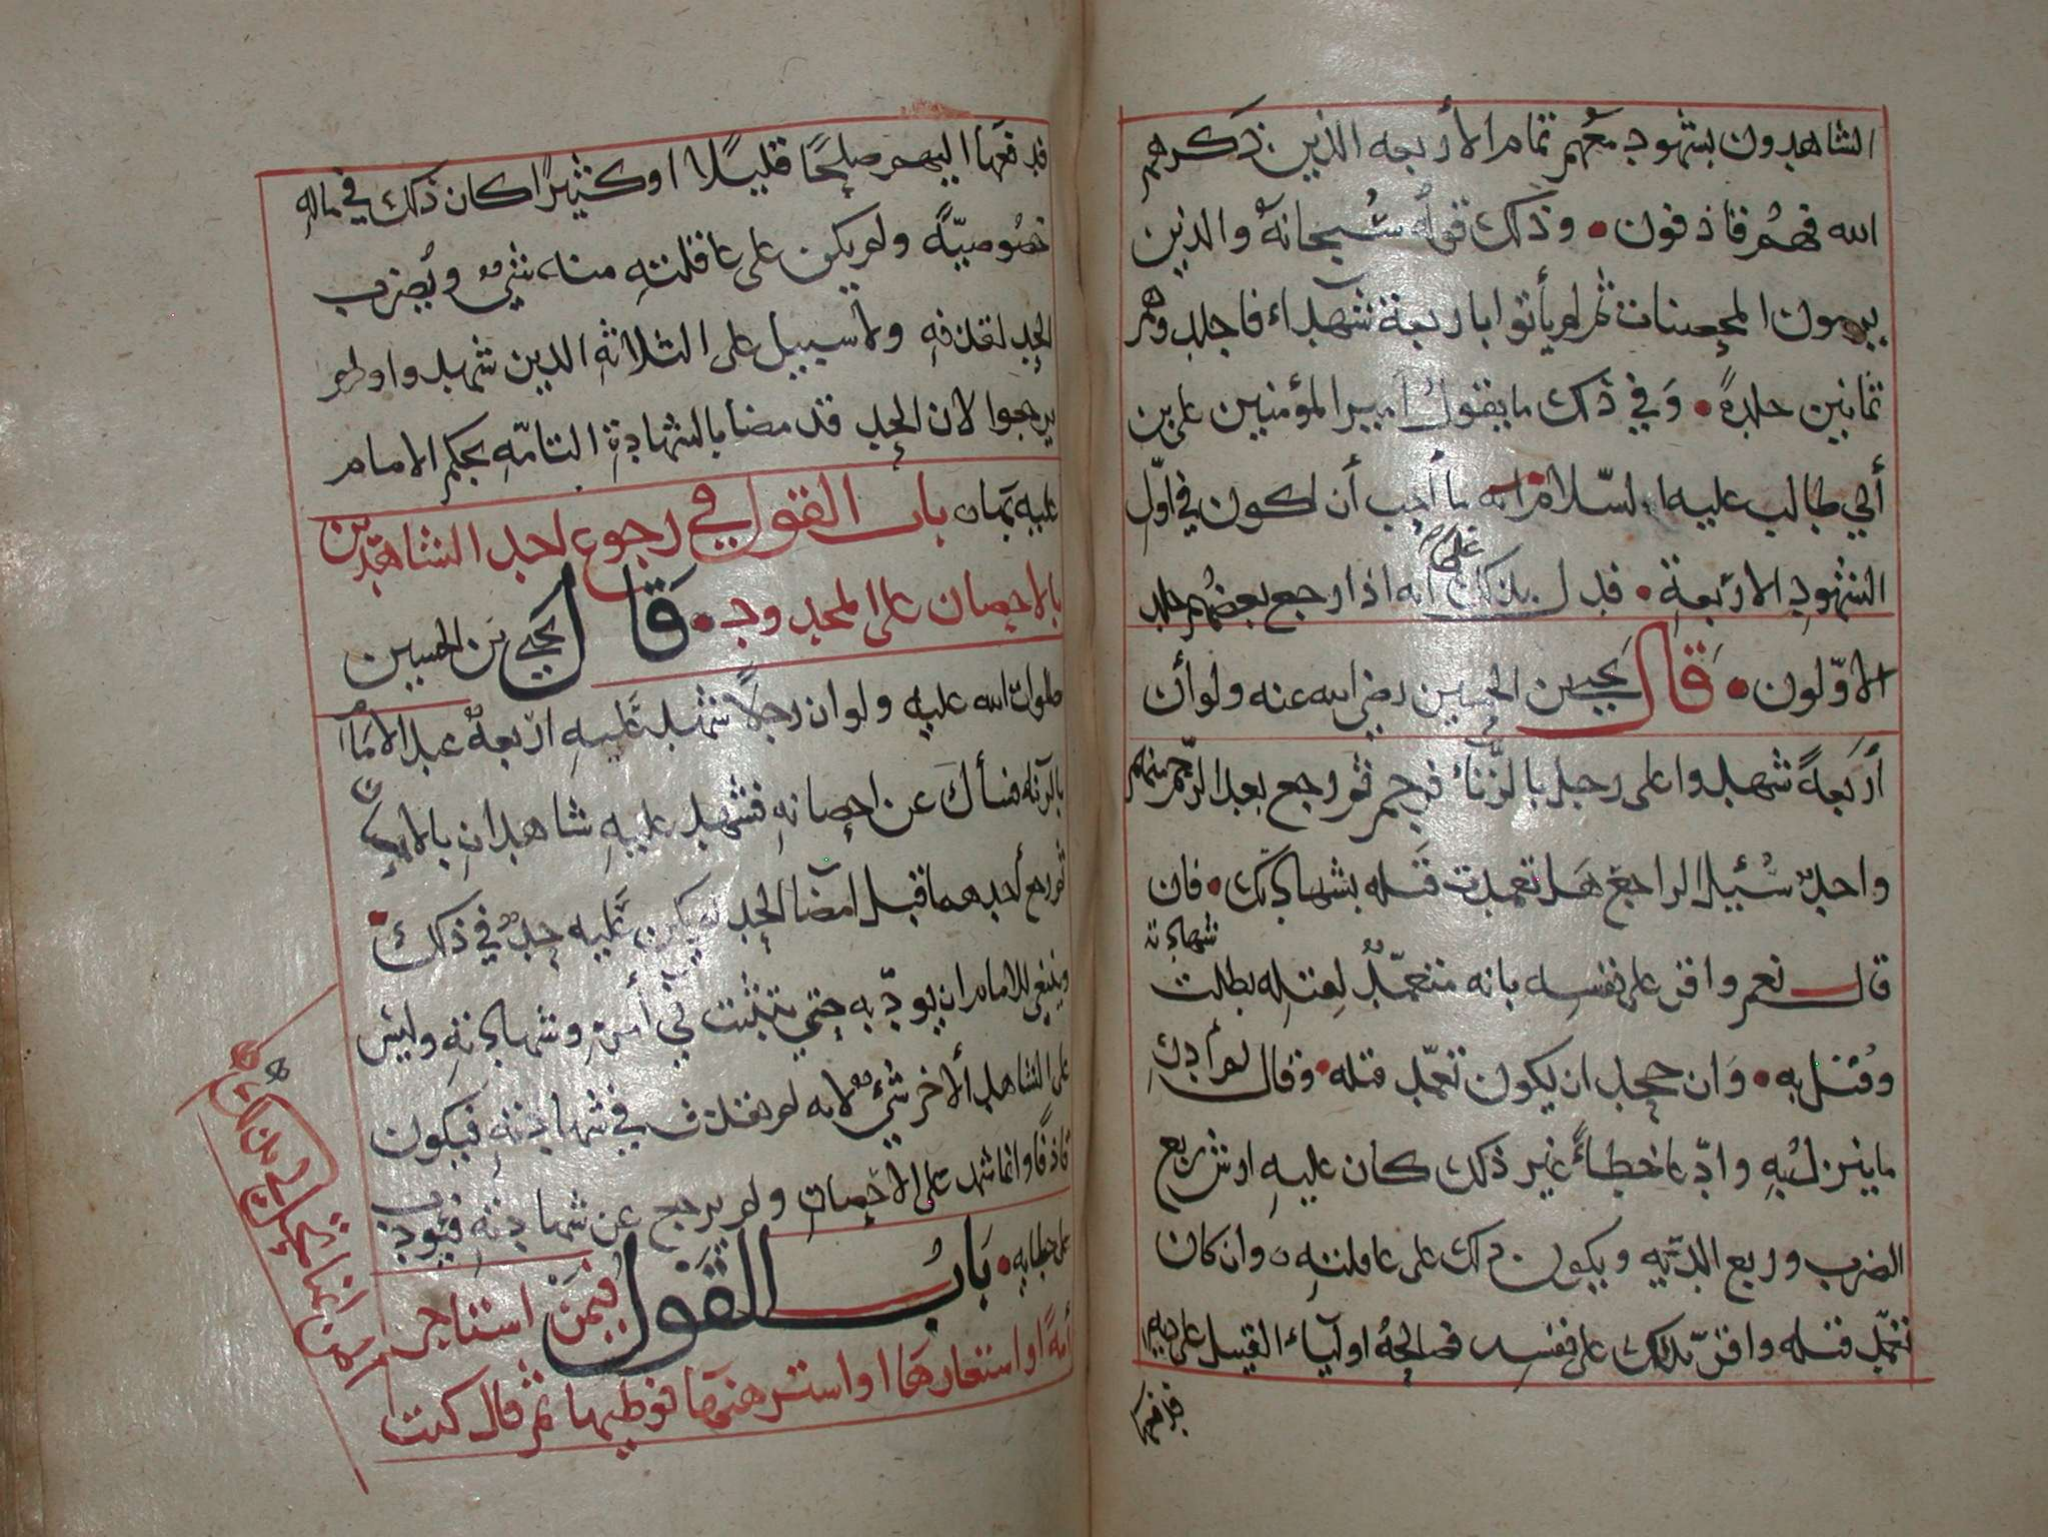 الشاهدون بشهود معهم تمام الأربعه الذين ذكرهم
الله فهم قاذفون • وذلك قوله سُبحانه والذين
يرمون المحصنات ثم لم يأتوا باربعة شهداء فاجلدوهم
ثمانين جلدةً • وَفي ذلك ما يقول أمير المؤمنين على بن
أبي طالب عليه السّلام انه ما أحب أن اكون في اوّل
الشهودِ الاربَعةِ • فدل بذلك على انه اذا رجع بعضُهم جلد
الاوّلون • قَال يحيى بن الحسين رضي الله عنه ولو أن
أربَعةً شهدوا على رجل بالزّنا فرجم ثم رجع بعد الرّجم منهم
واحدٌ سُئِل الراجع هَل تعمدت قَتله بشهادتك • فان
قال نعم واقر على نفسه بانه متعمّدٌ لِقتلِه بطلت شهادته
وقُتل به • وَان جحد ان يكون تعمّد قتله • وقال لم أدرِ
ما ينزل بِه وادّعا خطاءً غير ذلك كان عليهِ ارش ربع
الضرب وربع الدّيه ويكون ذلك على عاقلتهِ ٥ وان كان
تعمّد قتله واقرّ بذلك على نفسه فصالحهُ اولياء القتيل على ديه
فدفعها
فدفعَها اليهم صلحًا قليلًا او كثيرًا كان ذلك في مالهِ
خصُوصيّةً ولم يكن على عاقلتهِ منه شيءٌ ويُضرب
الحد لقذفهِ ولا سبيل على الثلاثهِ الذين شهدوا ولم
يرجعوا لان الحد قد مضا بالشهادةِ التامّهِ بحكم الامام
عليه بهَا ٥ باب القول في رجوع احد الشاهدين
بالاحصان على المحدود • قَال يحيى بن الحسين
صلوات الله عليهِ ولو ان رجلاً شهد عَليهِ اربعةٌ عند الامَام
بالزنا فسأل عن احصانهِ فشهد عليهِ شاهدانِ بالاحصان
ثم رجع أحدهما قبل امضا الحد لم يكن عَليه حدٌ في ذلك •
وينبغي للامام ان يودّبه حتى يتثبت في أمرهِ وشهادتهِ وليس
على الشاهد ألاخر شيءٌ لانه لم يقذف في شهادتهِ فيكون
قاذفًا وانما شهد على الاحصانِ ولم يرجع عن شهادتهِ فيودب
على خطايه • بَابُ القَول فيمَن استاجر
أمةً او استعارهَا او استرهنهَا فوطيها ثم قال كنت